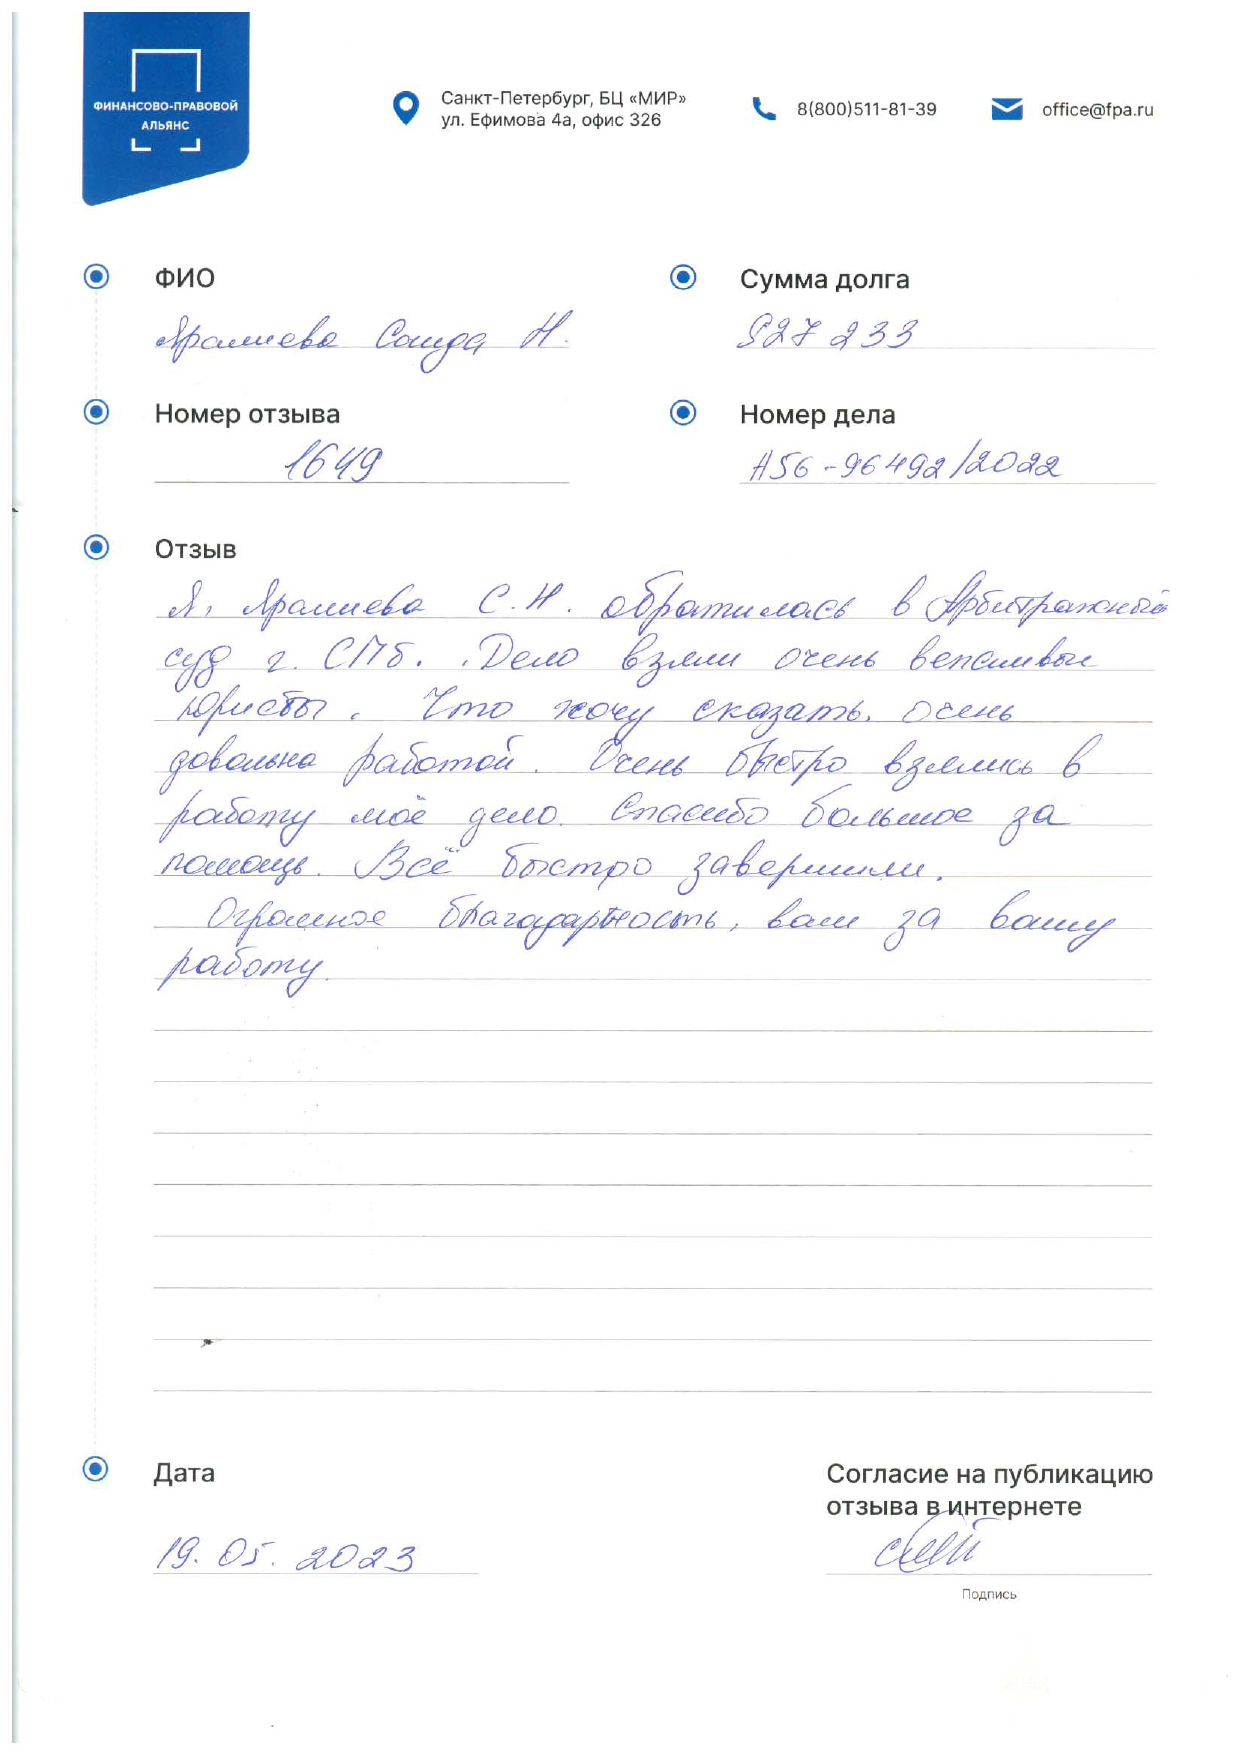 ФИНАНСОВО-ПРАВОВОЙ
АЛЬЯНС
Санкт-Петербург, БЦ «МИР»
ул. Ефимова 4а, офис 326
8(800)511-81-39
office@fpa.ru
ФИО
Сумма долга
Саида Н.
927 233
Номер отзыва
Номер дела
1649
А56-96492/2022
Отзыв
Я, С.Н. обратилась в Арбитражный
суд г. СПб. Дело взяли очень вежливые
юристы. Что хочу сказать. очень
довольна работой. Очень быстро взялись в
работу моё дело. Спасибо большое за
помощь. Всё быстро завершили.
Огромное благодарность, вам за вашу
работу.
Дата
Согласие на публикацию
отзыва в интернете
19.05.2023
Подпись